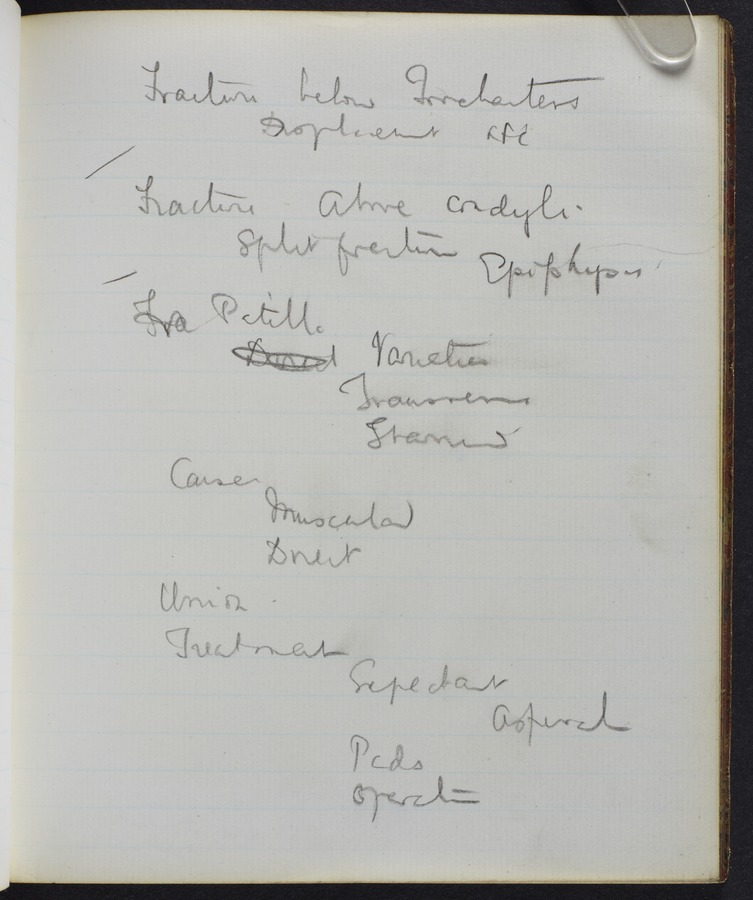 Fracture below Trochanters
Displacement &c
Fracture Above condyle.
Split fracture Epiphysis
Fra Patella
Varieties
Transverse
Starred
Causes
Muscular
Direct
Union.
Treatment
Expectant
Pads
Operation